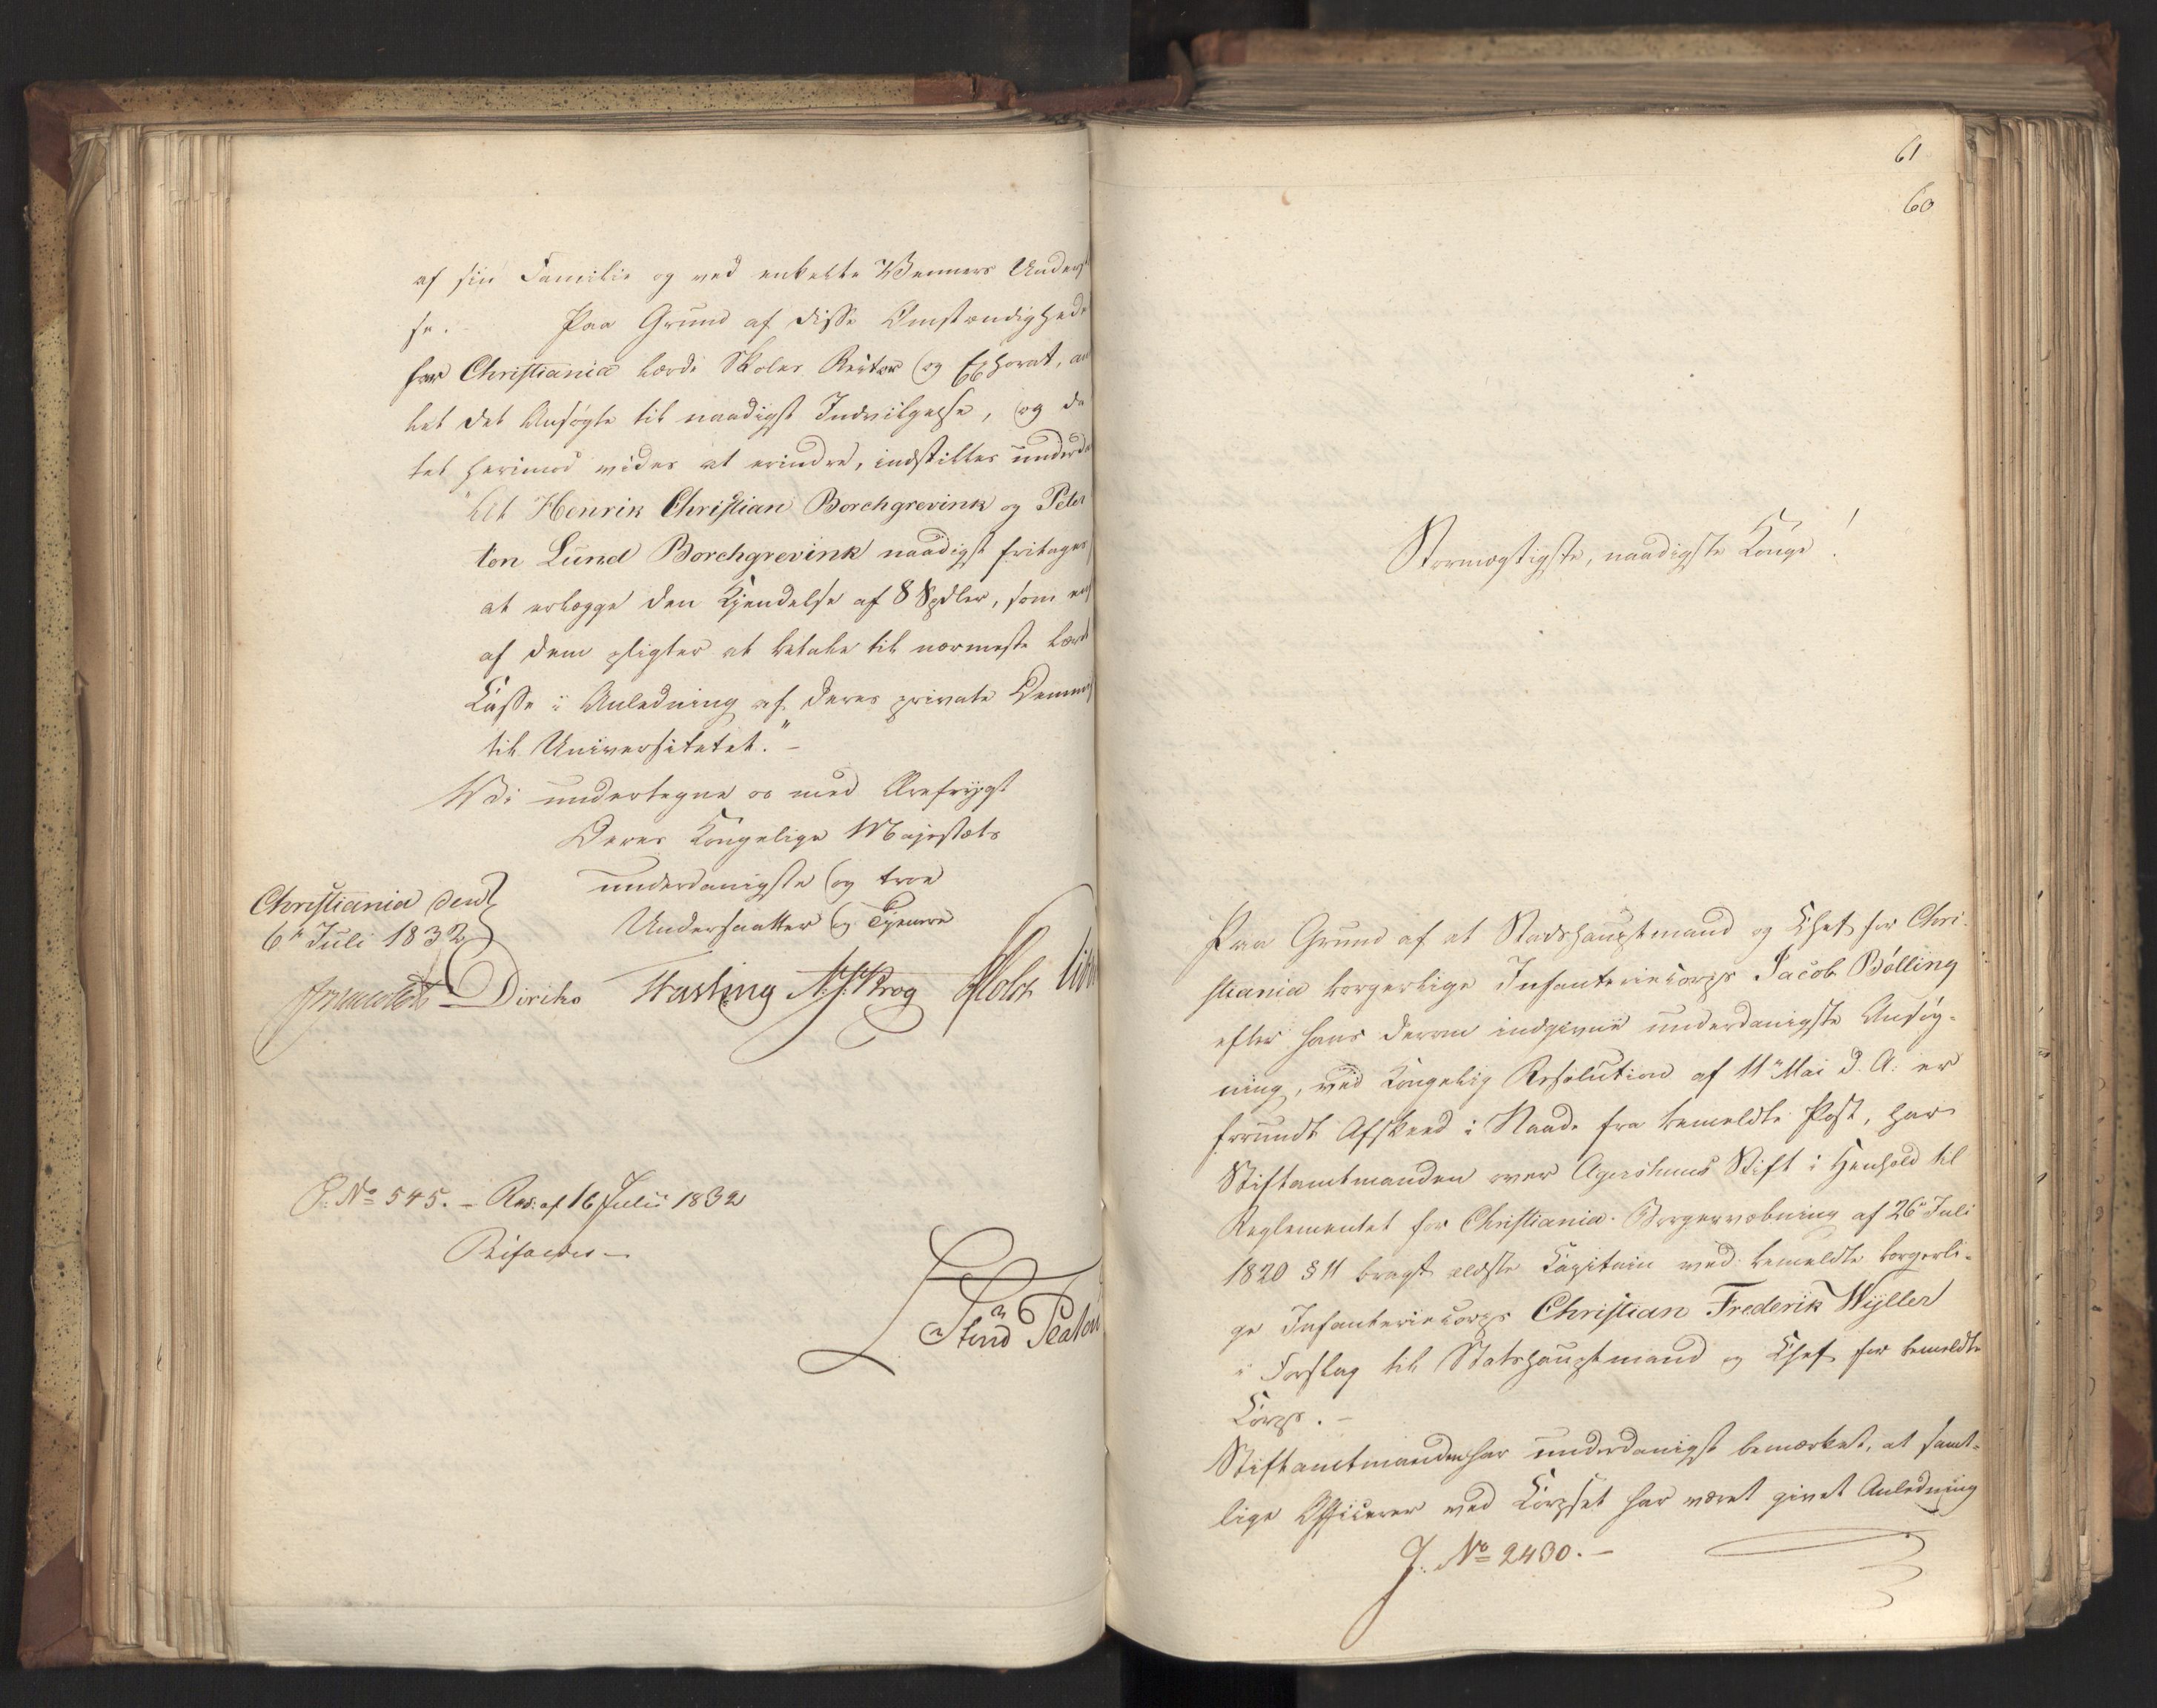 af sin Familie og ved enkelte Venners Underst
se. Paa Grund af disse Omstændighede
har Christiania lærde Skoles Rector og Ephorat, an
let det Ansøgte til naadigst Indvilgelse, og da
tet herimod vides at erindre, indstilles underda
"At Henrik Christian Borchgrevink og Peter
ton Lund Borchgrevink naadigst fritages
at erlægge den Kjendelse af 8 Spdlr, som en
af dem pligter at betale til nærmeste lærd
Casse i Anledning af deres private Demmis
til Universitetet."-
Vi undertegne os med Ærefrygt
Deres Kongelige Majestæts
underdanigste og troe
Undersaatter og Tjenere
Christiania den
6te Juli 1832
Diriks Fasting Krog Holst
P. No 545. - Res: af 16 Julii 1832
Bifaldes -
61
60
Stormægtigste, naadigste Konge!
Paa Grund af at Stadshauptmand og Chef for Chri-
stiania borgerlige Infanteriecorps Jacob Bølling
efter hans derom indgivne underdanigste Ansøg-
ning, ved kongelig Resolution af 11te Mai d. A. er
forundt Afskeed i Naade fra bemeldte Post, har
Stiftamtmanden over Agershuus Stift i Henhold til
Reglementet for Christiania Borgervæbning af 26de Juli
1820 § 11 bragt ældste Capitain ved bemeldte borgerli-
ge Infanteriecorps Christian Frederik Wyller
i Forslag til Stadshauptmand og Chef for bemeldte
Corps. -
Stiftamtmanden har underdanigst bemærket, at samt-
lige Officerer ved Corpset har været givet Anledning
J. No 2430. -